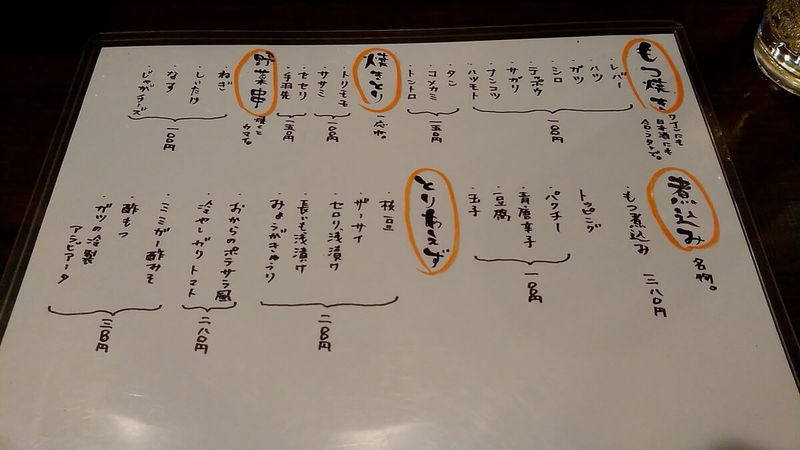 もつ焼き
ワインにも
日本酒にも
・レバー
・ハツ
・ガツ
・シロ
・テッポウ
・サガリ
・ナンコツ
・ハツモト
一〇〇円
・タン
・コメカミ
・トントロ
一五〇円
焼きとり
一応ね。
・トリモモ
・ササミ
一〇〇円
・セセリ
・手羽先
一五〇円
野菜串
焼くと
ウマイ。
・ねぎ
・しいたけ
・なす
・じゃがチーズ
一〇〇円
煮込み
名物。
・もつ煮込み 三八〇円
トッピング
・パクチー
・青唐辛子
・豆腐
・玉子
一〇〇円
とりあえず
・枝豆
・ザーサイ
・セロリ浅漬け
・長いも浅漬け
・みょうがきゅうり
二八〇円
・おからのポテサラ風
・冷やしガリトマト
二八〇円
・ミミガー酢みそ
・酢もつ
・ガツの冷製
アラビアータ
三八〇円